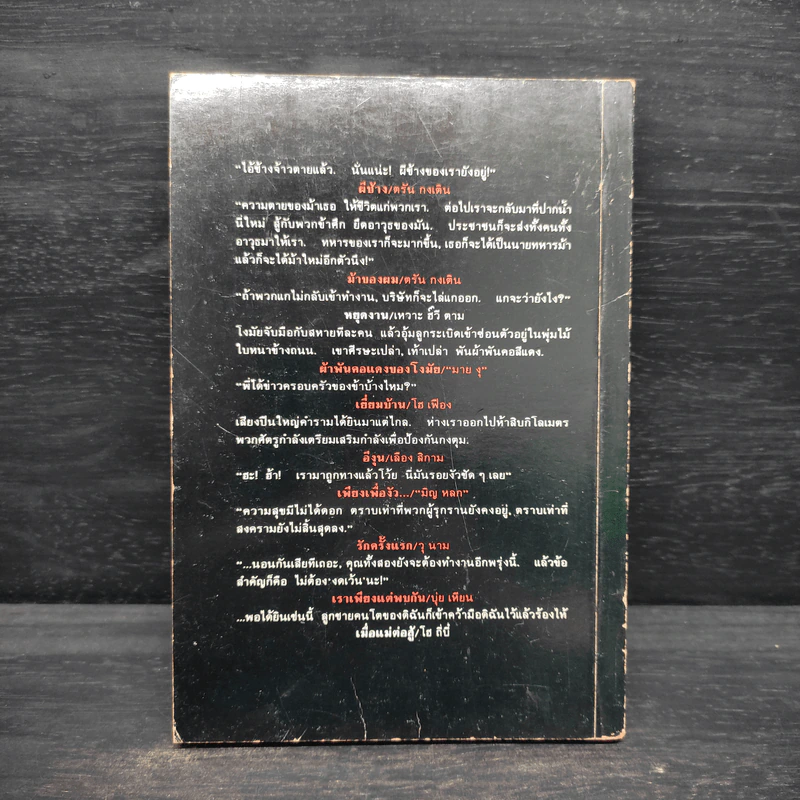 "ไอ้ช้างจ้าวตายแล้ว. นั่นแน่ะ! ผีช้างของเรายังอยู่!"
ผีช้าง/ตรัน กงเดิน
"ความตายของม้าเธอ ให้ชีวิตแก่พวกเรา. ต่อไปเราจะกลับมาที่ปากน้ำ
นี่ใหม่ สู้กับพวกข้าศึก ยึดอาวุธของมัน. ประชาชนก็จะส่งทั้งคนทั้ง
อาวุธมาให้เรา. ทหารของเราก็จะมากขึ้น, เธอก็จะได้เป็นนายทหารม้า
แล้วก็จะได้ม้าใหม่อีกตัวนึง!"
ม้าของผม/ตรัน กงเติน
"ถ้าพวกแกไม่กลับเข้าทำงาน, บริษัทก็จะไล่แกออก. แกจะว่ายังไง?"
หยุดงาน/เหวาะ ฮวี ตาม
โงมัยจับมือกับสหายทีละคน แล้วอุ้มลูกระเบิดเข้าซ่อนตัวอยู่ในพุ่มไม้
ใบหนาข้างถนน. เขาศีรษะเปล่า, เท้าเปล่า พันผ้าพันคอสีแดง.
ผ้าพันคอแดงของโงมัย/"มาย งุ"
"พี่ได้ข่าวครอบครัวของข้าบ้างไหม?"
เยี่ยมบ้าน/โฮ เฟือง
เสียงปืนใหญ่คำรามได้ยินมาแต่ไกล. ห่างเราออกไปห้าสิบกิโลเมตร
พวกศัตรูกำลังเตรียมเสริมกำลังเพื่อป้องกันกงตุม.
อีงุน/เลือง สิกาม
"ฮะ! ฮ้า! เรามาถูกทางแล้วโว้ย นี่มันรอยงัวชัด ๆ เลย"
เพียงเพื่องัว.../"มิญ หลก"
"ความสุขมีไม่ได้ดอก ตราบเท่าที่พวกผู้รุกรานยังคงอยู่, ตราบเท่าที่
สงครามยังไม่สิ้นสุดลง."
รักครั้งแรก/วุ นาม
"...นอนกันเสียทีเถอะ, คุณทั้งสองยังจะต้องทำงานอีกพรุ่งนี้. แล้วข้อ
สำคัญก็คือ ไม่ต้อง'งดเว้น'นะ!"
เราเพียงแต่พบกัน/บุ่ย เหียน
...พอได้ยินเช่นนี้ ลูกชายคนโตของดิฉันก็เข้าคว้ามือดิฉันไว้แล้วร้องไห้
เมื่อแม่ต่อสู้/โฮ ถี่บี่